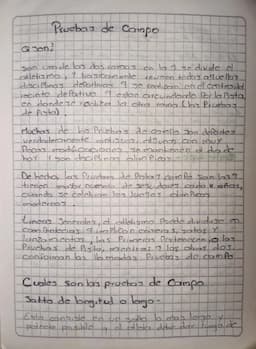 Pruebas de Campo
Q son?
son una de las dos ramas en las q se divide el
atletismo, y basicamente reunen todas aquellas
disciplinas deportivas q se realizan en el centro del
recinto deportivo q estan circundado por la Pista,
en donde se realiza la otra rama (las Pruebas
de Pista).
Muchas de las Pruebas de campo son deportes
verdaderamente antiguos,
Pocas modificaciones se mantienen al dia de
hoy y son disciplinas olimpicas
De hecho las Pruebas de Pista y campo son las q
tienen mayor numero de seguidores cada 4 años,
cuando se celebran los Juegos olimpicos
modernos.
Lineas Generales, el atletismo Puede dividirse en
competencias q implican carreras, saltos y
lanzamientos, las Primeras Pertenecen a las
Pruebas de Pista, mientras q las otras dos
conforman las llamadas Pruebas de campo
Cuales son las pruebas de Campo
Salto de longitud o largo -
Esta consiste en un salto lo mas largo
posible y el atleta debe dar luego de